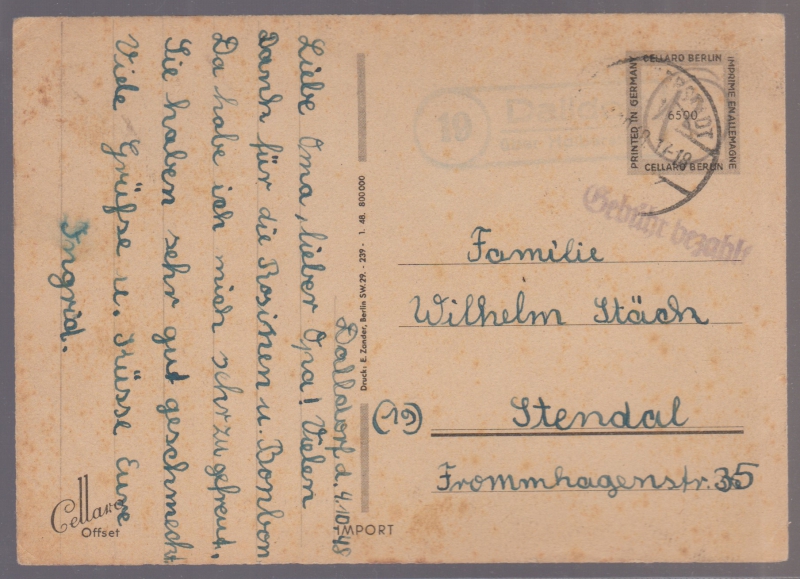 Dalldorf d. 4.10.48
Liebe Oma, lieber Opa! Vielen
Dank für die Rosinen u. Bonbon
Da habe ich mich sehr zu gefreut.
Sie haben sehr gut geschmeckt
Viele Grüfse u. Küsse Eure
Ingrid.
Cellaro
Offset
Druck: E. Zander, Berlin SW. 29. - 239 - 1. 48. 800 000
IMPORT
CELLARO BERLIN
PRINTED IN GERMANY
IMPRIME EN ALLEMAGNE
6500
CELLARO BERLIN
17-18
Gebühr bezahlt
Familie
Wilhelm Stäch
(19) Stendal
Frommhagenstr. 35